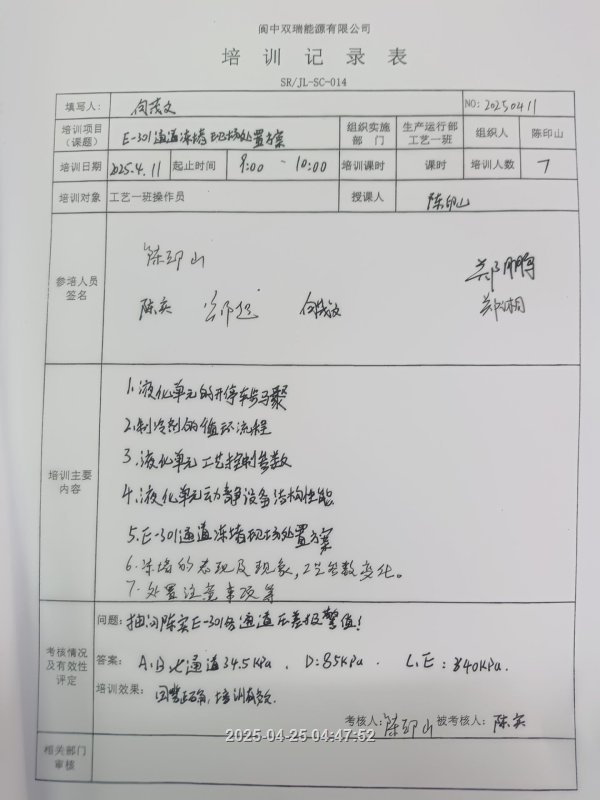 阆中双瑞能源有限公司
培训记录表
SR/JL-SC-014
填写人： 何茂文 NO: 20250411
培训项目（课题） E-301通道冻堵现场处置方案 组织实施部门 生产运行部工艺一班 组织人 陈印山
培训日期 2025.4.11 起止时间 9:00 ~ 10:00 培训课时 课时 培训人数 7
培训对象 工艺一班操作员 授课人 陈印山
参培人员签名
陈印山
陈实
培训主要内容
1.液化单元的开停车步骤
2.制冷剂的循环流程
3.液化单元工艺控制参数
4.液化单元动静设备结构性能
5.E-301通道冻堵现场处置方案
6.冻堵的表现及现象,工艺参数变化。
7.处置注意事项等
考核情况及有效性评定
问题：抽问陈实E-301各通道压差报警值!
答案： A、B、C通道34.5KPa . D:85KPa . E: 340KPa.
培训效果： 回答正确，培训有效.
考核人：陈印山 被考核人：陈实
相关部门审核
2025-04-25 04:47:52